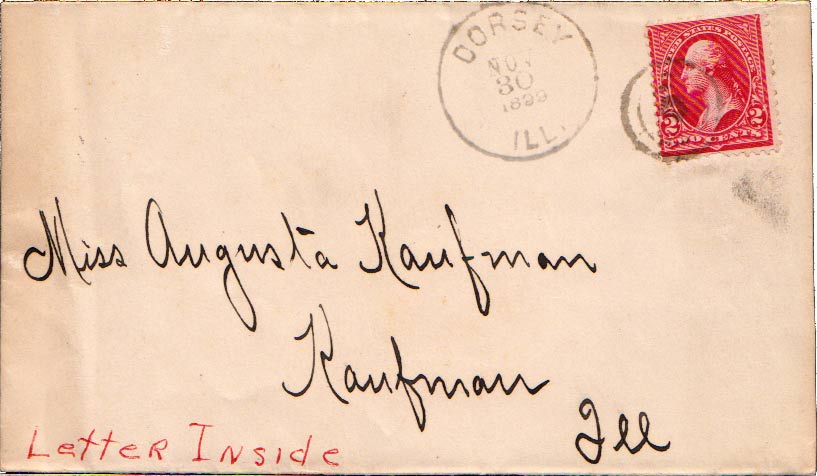 DORSEY
NOV
30
1899
ILL.
UNITED STATES POSTAGE
2 2
TWO CENTS
Miss Augusta Kaufman
Kaufman
Ill
Letter Inside